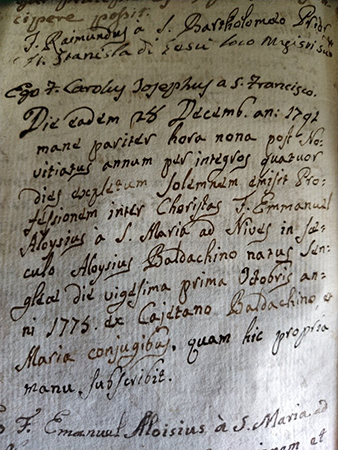 cipere possit.
F. Raimundus à S. Bartholomeo Prior
F. Stanisla di Jesu loco Magistri
Ego F. Carolus Josephus a S. Francisco.
Die eadem 28 Decemb. an: 1791
mane pariter hora nona post No-
vitiatus annum per integros quatuor
dies expletum Solemnem emisit Pro-
fessionem inter Choristas F. Emmanuel
Aloysius à S. Maria ad Nives in sæ-
culo Aloysius Baldachino natus Sen-
gleæ die vigesima prima Octobris an-
ni 1775. ex Cajetano Baldachino et
Maria conjugibus, quam hic propria
manu subscribit.
F. Emanuel Aloisius à S. Maria ad